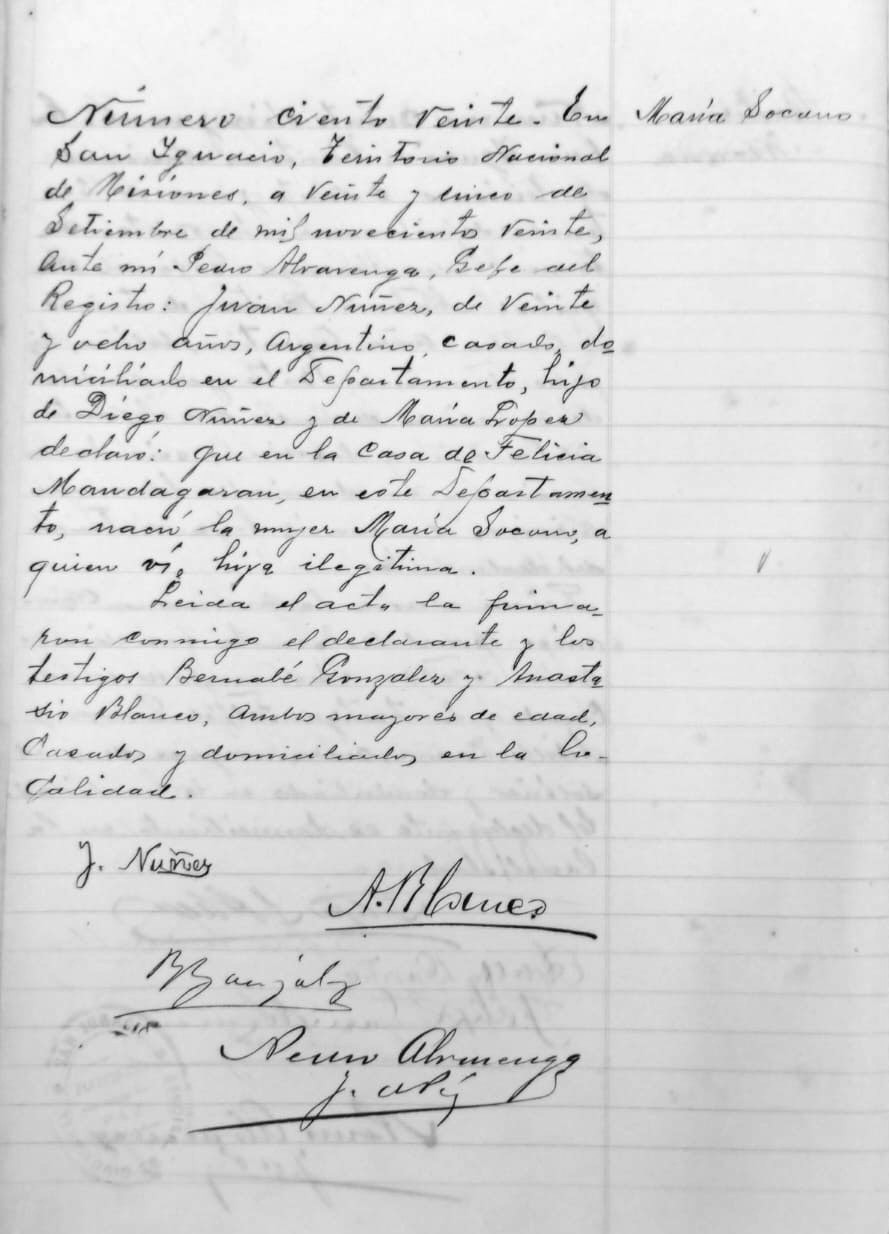 Número ciento veinte. En
San Ygnacio, Territorio Nacional
de Misiones, a veinte y cinco de
Setiembre de mil novecientos veinte,
ante mi Pedro Alvarenga, Gefe del
Registro: Juan Nuñez, de veinte
y ocho años, Argentino, casado, do
miciliado en el Departamento, hijo
de Diego Nuñez y de Maria Lopez
declaró: que en la casa de Felicia
Mandagaran, en este Departamen
to, nació la mujer María Socorro, a
quien ví, hija ilegitima.
Leida el acta la firma-
ron conmigo el declarante y los
testigos Bernabé Gonzalez y Anasta
sio Blanco, ambos mayores de edad,
Casados y domiciliados en la lo-
calidad.
María Socorro
J. Nuñez
A. Blanco
B Gonzalez
Pedro Alvarenga